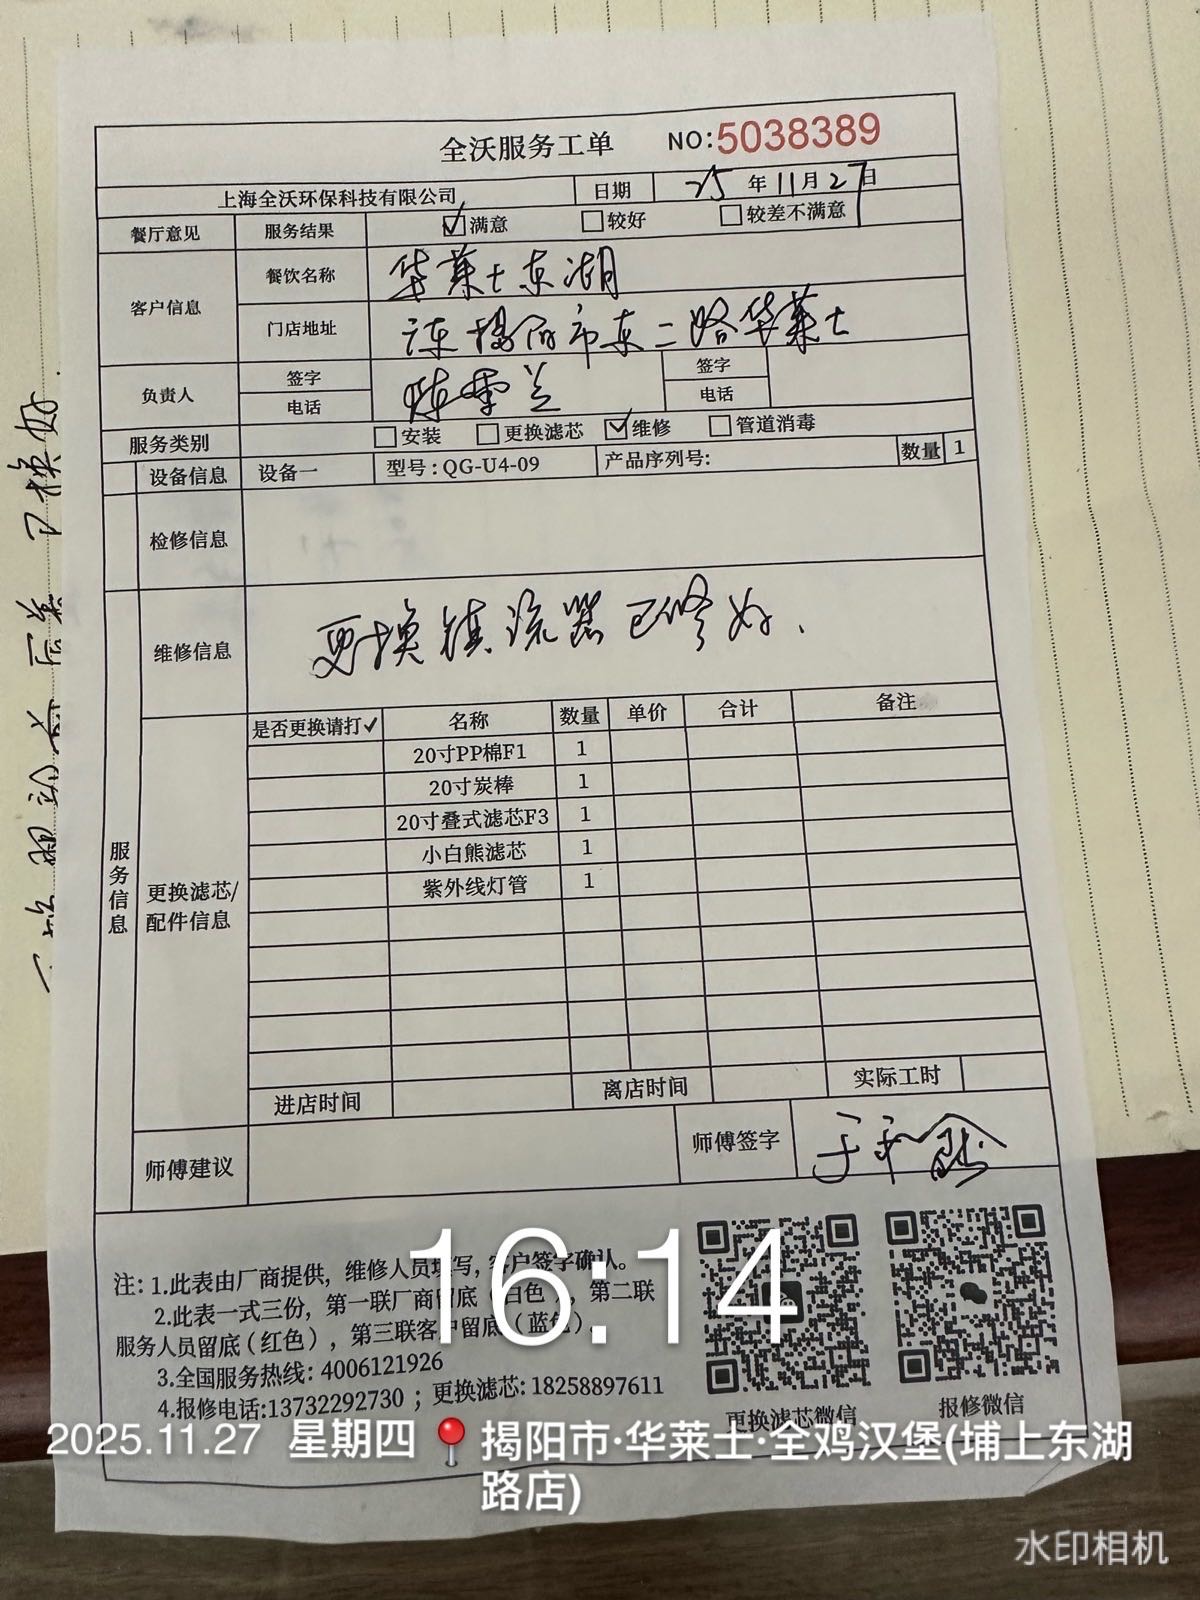 全沃服务工单 NO:5038389
上海全沃环保科技有限公司 日期 25年11月27日
餐厅意见 服务结果 ☑满意 □较好 □较差不满意
客户信息 餐饮名称 华莱士东湖
门店地址 揭阳市东二路华莱士
负责人 签字 陈 兰 签字
电话 电话
服务类别 □安装 □更换滤芯 ☑维修 □管道消毒
设备信息 设备一 型号:QG-U4-09 产品序列号: 数量 1
检修信息
维修信息 更换镇流器已修好.
服务信息
更换滤芯/配件信息
是否更换请打✓ 名称 数量 单价 合计 备注
20寸PP棉F1 1
20寸炭棒 1
20寸叠式滤芯F3 1
小白熊滤芯 1
紫外线灯管 1
进店时间 离店时间 实际工时
师傅建议 师傅签字
注: 1.此表由厂商提供，维修人员填写，客户签字确认。
2.此表一式三份，第一联厂商留底（白色），第二联
服务人员留底（红色），第三联客户留底（蓝色）。
3.全国服务热线: 4006121926
4.报修电话:13732292730；更换滤芯: 18258897611
更换滤芯微信 报修微信
16:14
2025.11.27 星期四 揭阳市·华莱士·全鸡汉堡(埔上东湖
路店)
水印相机